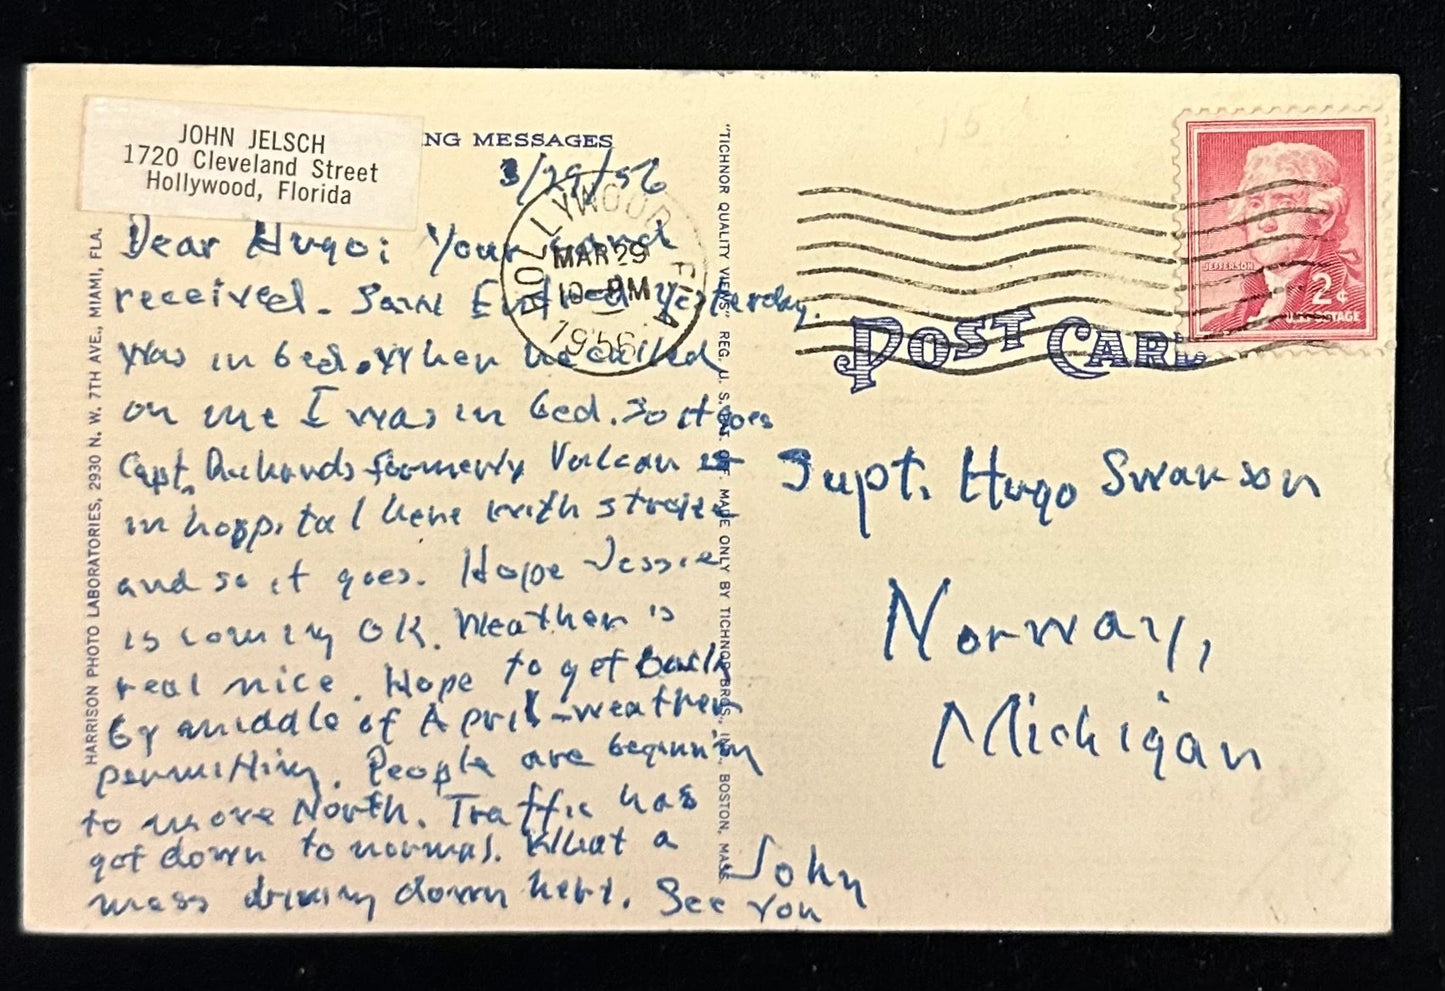 JOHN JELSCH
1720 Cleveland Street
Hollywood, Florida
NG MESSAGES
3/29/56
Dear Hugo: Your card
received. Saw yesterday.
Was in bed. When he called
on me I was in bed. So it goes
Capt. formerly Vulcan is
in hospital here with stroke
and so it goes. Hope Jessie
is coming OK. Weather is
real nice. Hope to get back
by middle of April - weather
permitting. People are beginning
to move North. Traffic has
got down to normal. What a
mess driving down here. See you
John
HOLLYWOOD FLA
MAR 29
10 - PM
1956
HARRISON PHOTO LABORATORIES, 2930 N. W. 7TH AVE., MIAMI, FLA.
"TICHNOR QUALITY VIEWS" REG. U. S. PAT. OFF. MADE ONLY BY TICHNOR BROS., INC., BOSTON, MASS.
POST CARD
JEFFERSON
2¢
U.S. POSTAGE
Supt. Hugo Swanson
Norway,
Michigan